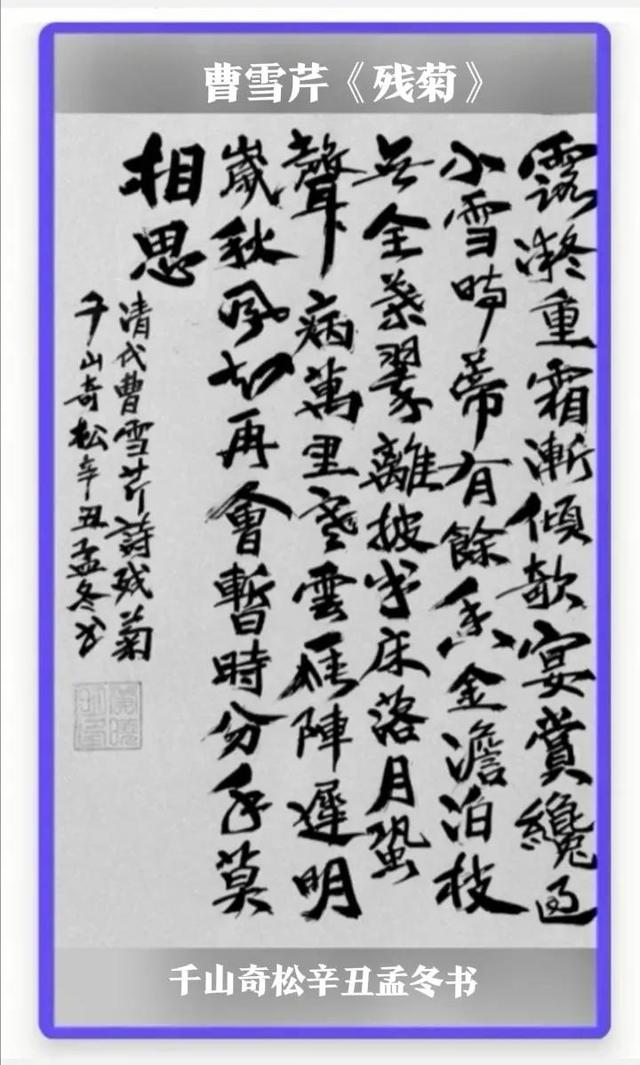 曹雪芹《残菊》
露凝重霜漸傾欹宴賞纔過
小雪時蒂有餘香金澹泊枝
無全葉翠離披半床落月蛩
聲病萬里寒雲雁陣遲明
歲秋風知再會暫時分手莫
相思
清代曹雪芹詩残菊
千山奇松辛丑孟冬书
千山奇松辛丑孟冬书